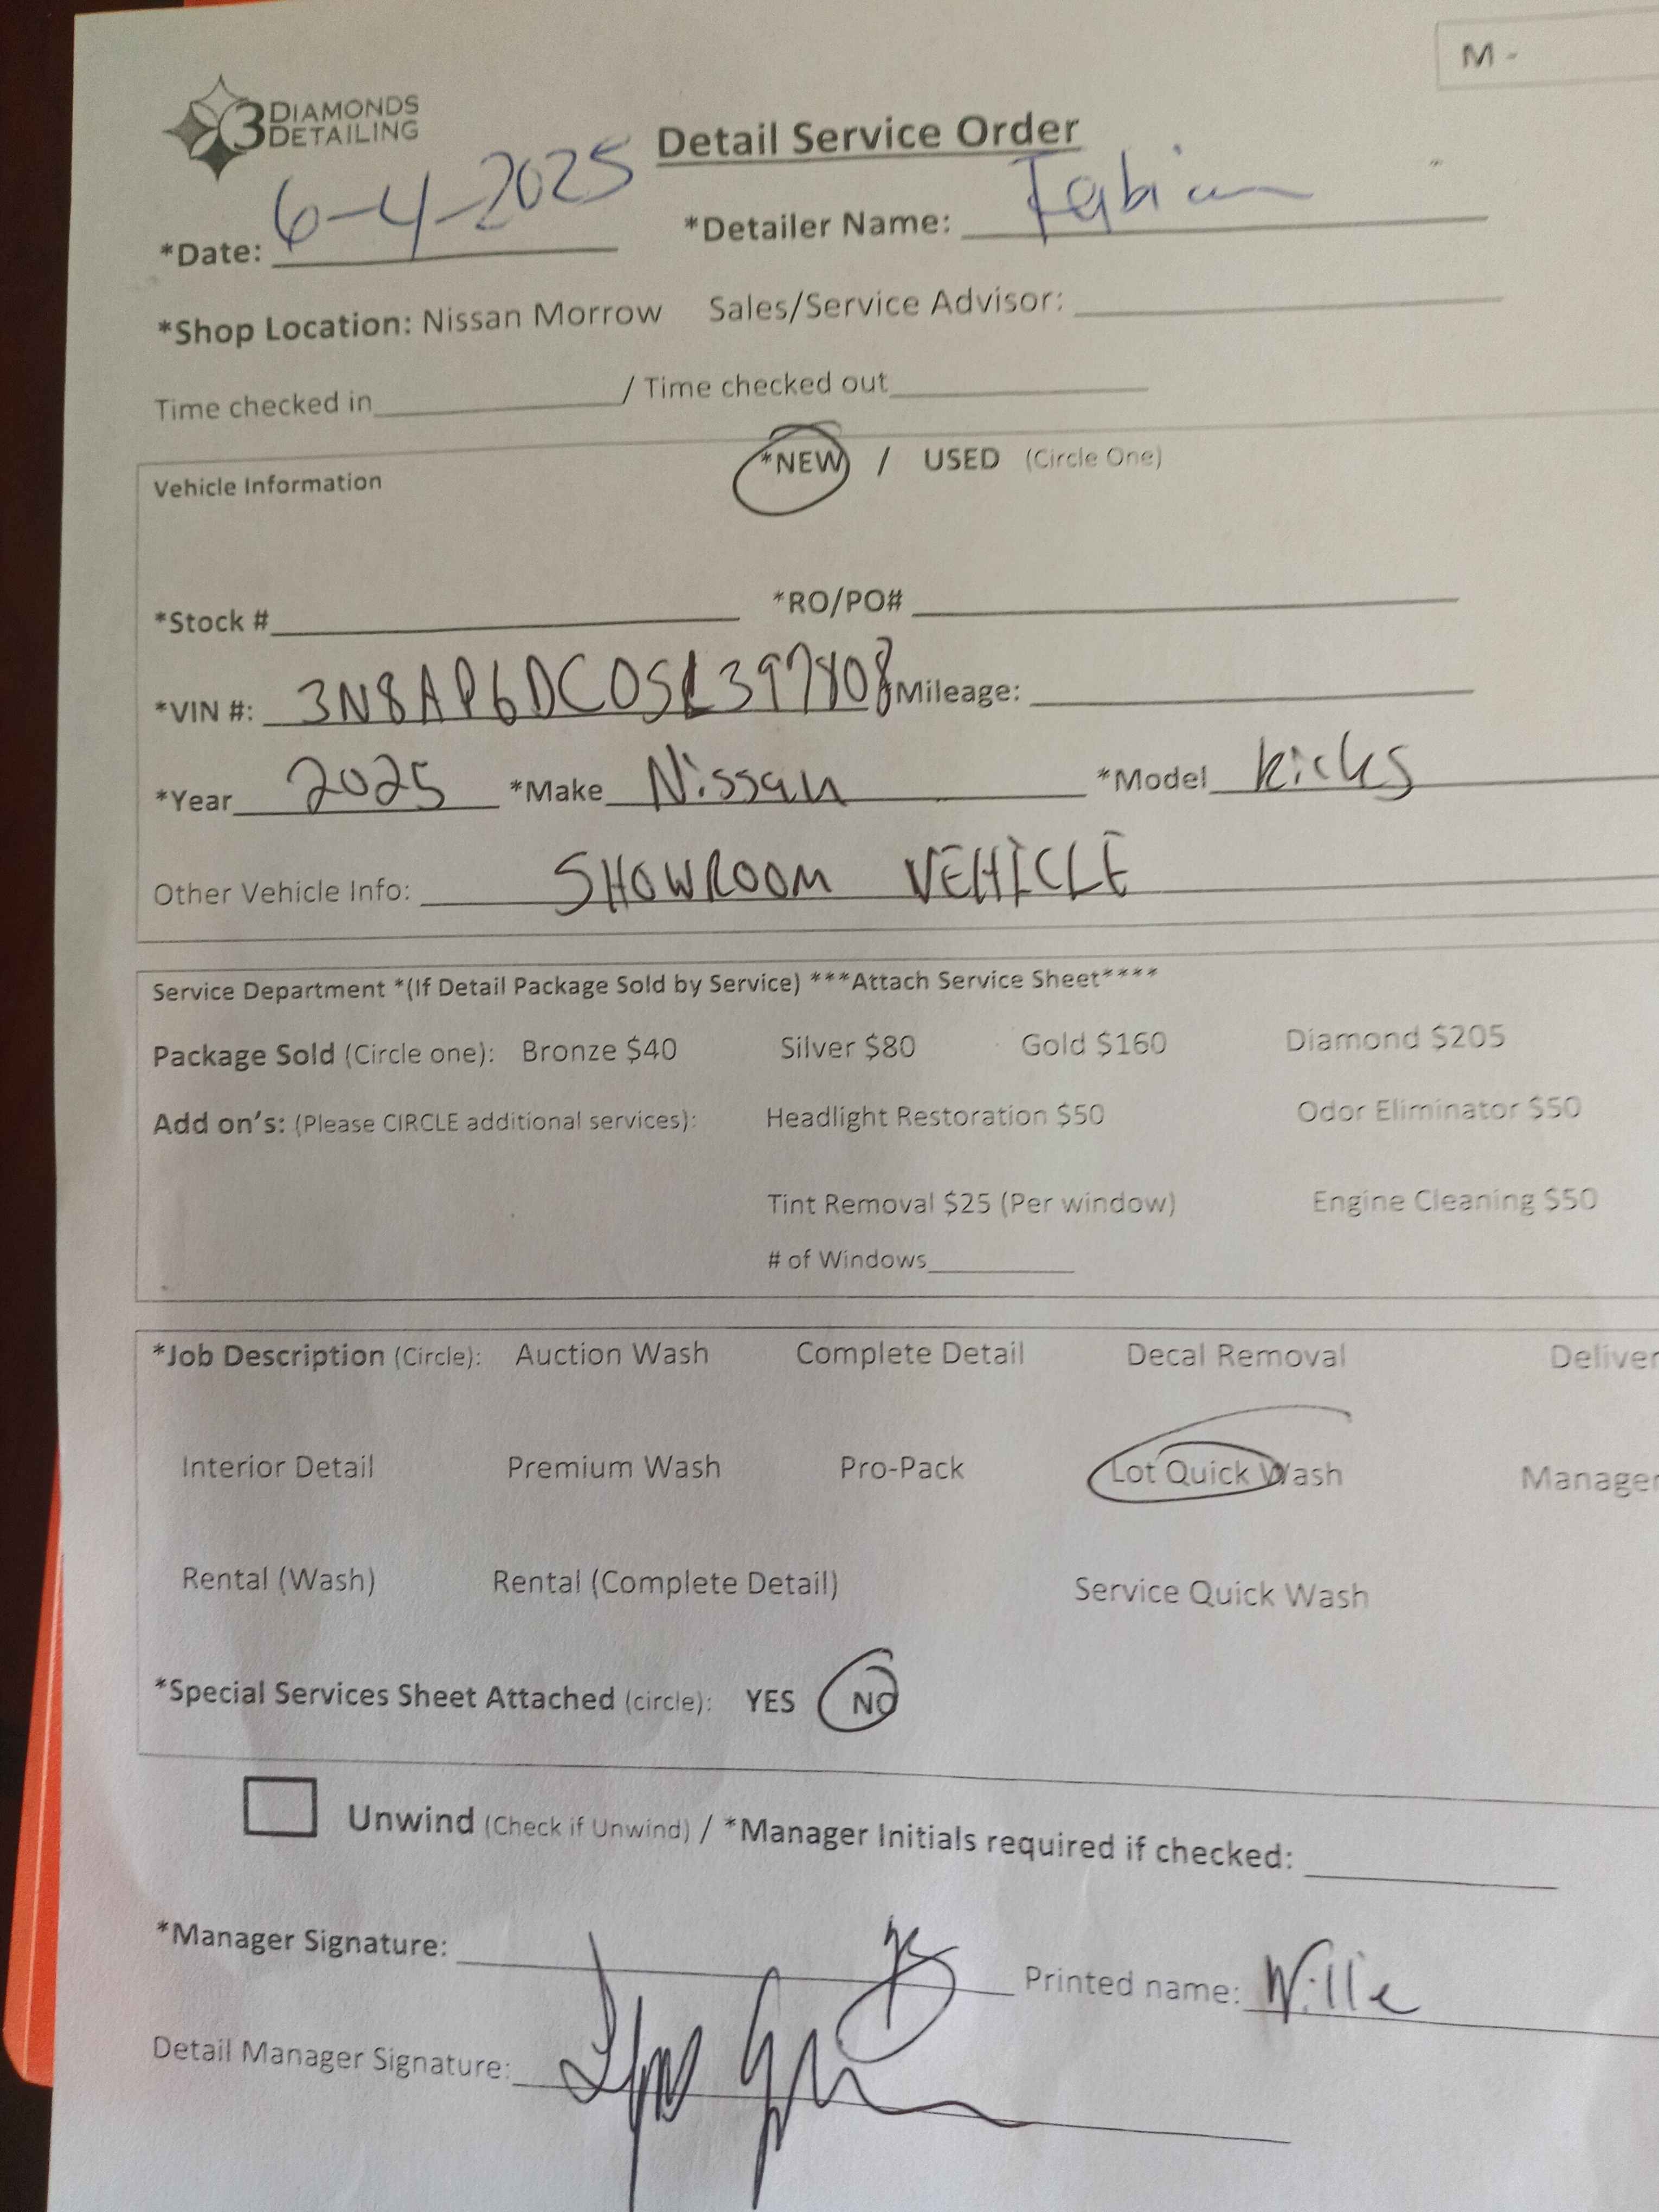 M -
3 DIAMONDS
DETAILING
Detail Service Order
*Date: 6-4-2025 *Detailer Name: Fabian
*Shop Location: Nissan Morrow Sales/Service Advisor:
Time checked in / Time checked out
Vehicle Information *NEW / USED (Circle One)
*Stock # *RO/PO#
*VIN #: 3N8AP6DC0SL397808 Mileage:
*Year 2025 *Make Nissan *Model Kicks
Other Vehicle Info: SHOWROOM VEHICLE
Service Department *(If Detail Package Sold by Service) ***Attach Service Sheet****
Package Sold (Circle one): Bronze $40 Silver $80 Gold $160 Diamond $205
Add on's: (Please CIRCLE additional services): Headlight Restoration $50 Odor Eliminator $50
Tint Removal $25 (Per window) Engine Cleaning $50
# of Windows
*Job Description (Circle): Auction Wash Complete Detail Decal Removal Deliver
Interior Detail Premium Wash Pro-Pack Lot Quick Wash Manager
Rental (Wash) Rental (Complete Detail) Service Quick Wash
*Special Services Sheet Attached (circle): YES NO
Unwind (Check if Unwind) / *Manager Initials required if checked:
*Manager Signature: Printed name: Willie
Detail Manager Signature: